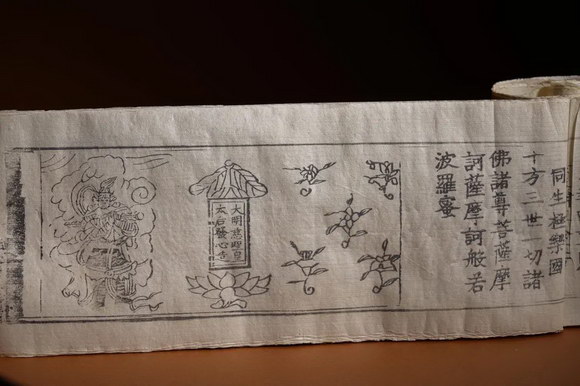 同生極樂國
十方三世一切諸
佛諸尊菩薩摩
訶薩摩訶般若
波羅蜜
大明慈聖皇
太后發心